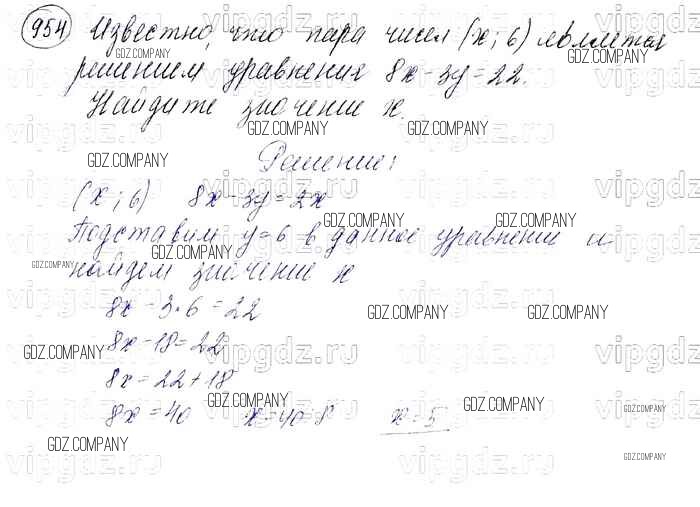 954 Известно, что пара чисел (x; 6) является
решением уравнения 8x-3y=22.
Найдите значение x.
Решение:
(x; 6) 8x-3y=2x
Подставим y=6 в данное уравнение и
найдем значение x
8x - 3·6 = 22
8x - 18 = 22
8x = 22 + 18
8x = 40 x = 40 : 8 x = 5
GDZ.COMPANY
vipgdz.ru